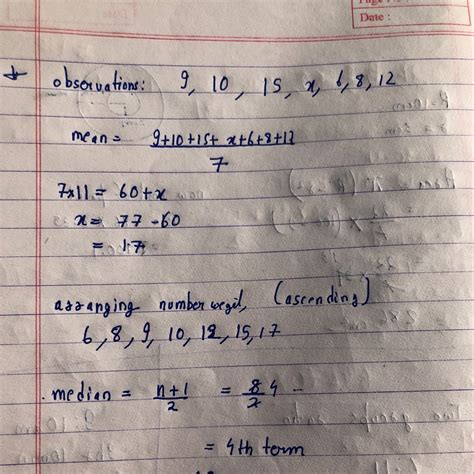 Date :
observations: 9, 10, 15, x, 6, 8, 12
mean = 9+10+15+x+6+8+12
7
7x11 = 60+x
x = 77-60
= 17
arranging number we git, (ascending)
6, 8, 9, 10, 12, 15, 17
median = n+1/2 = 8/2 4
= 4th term